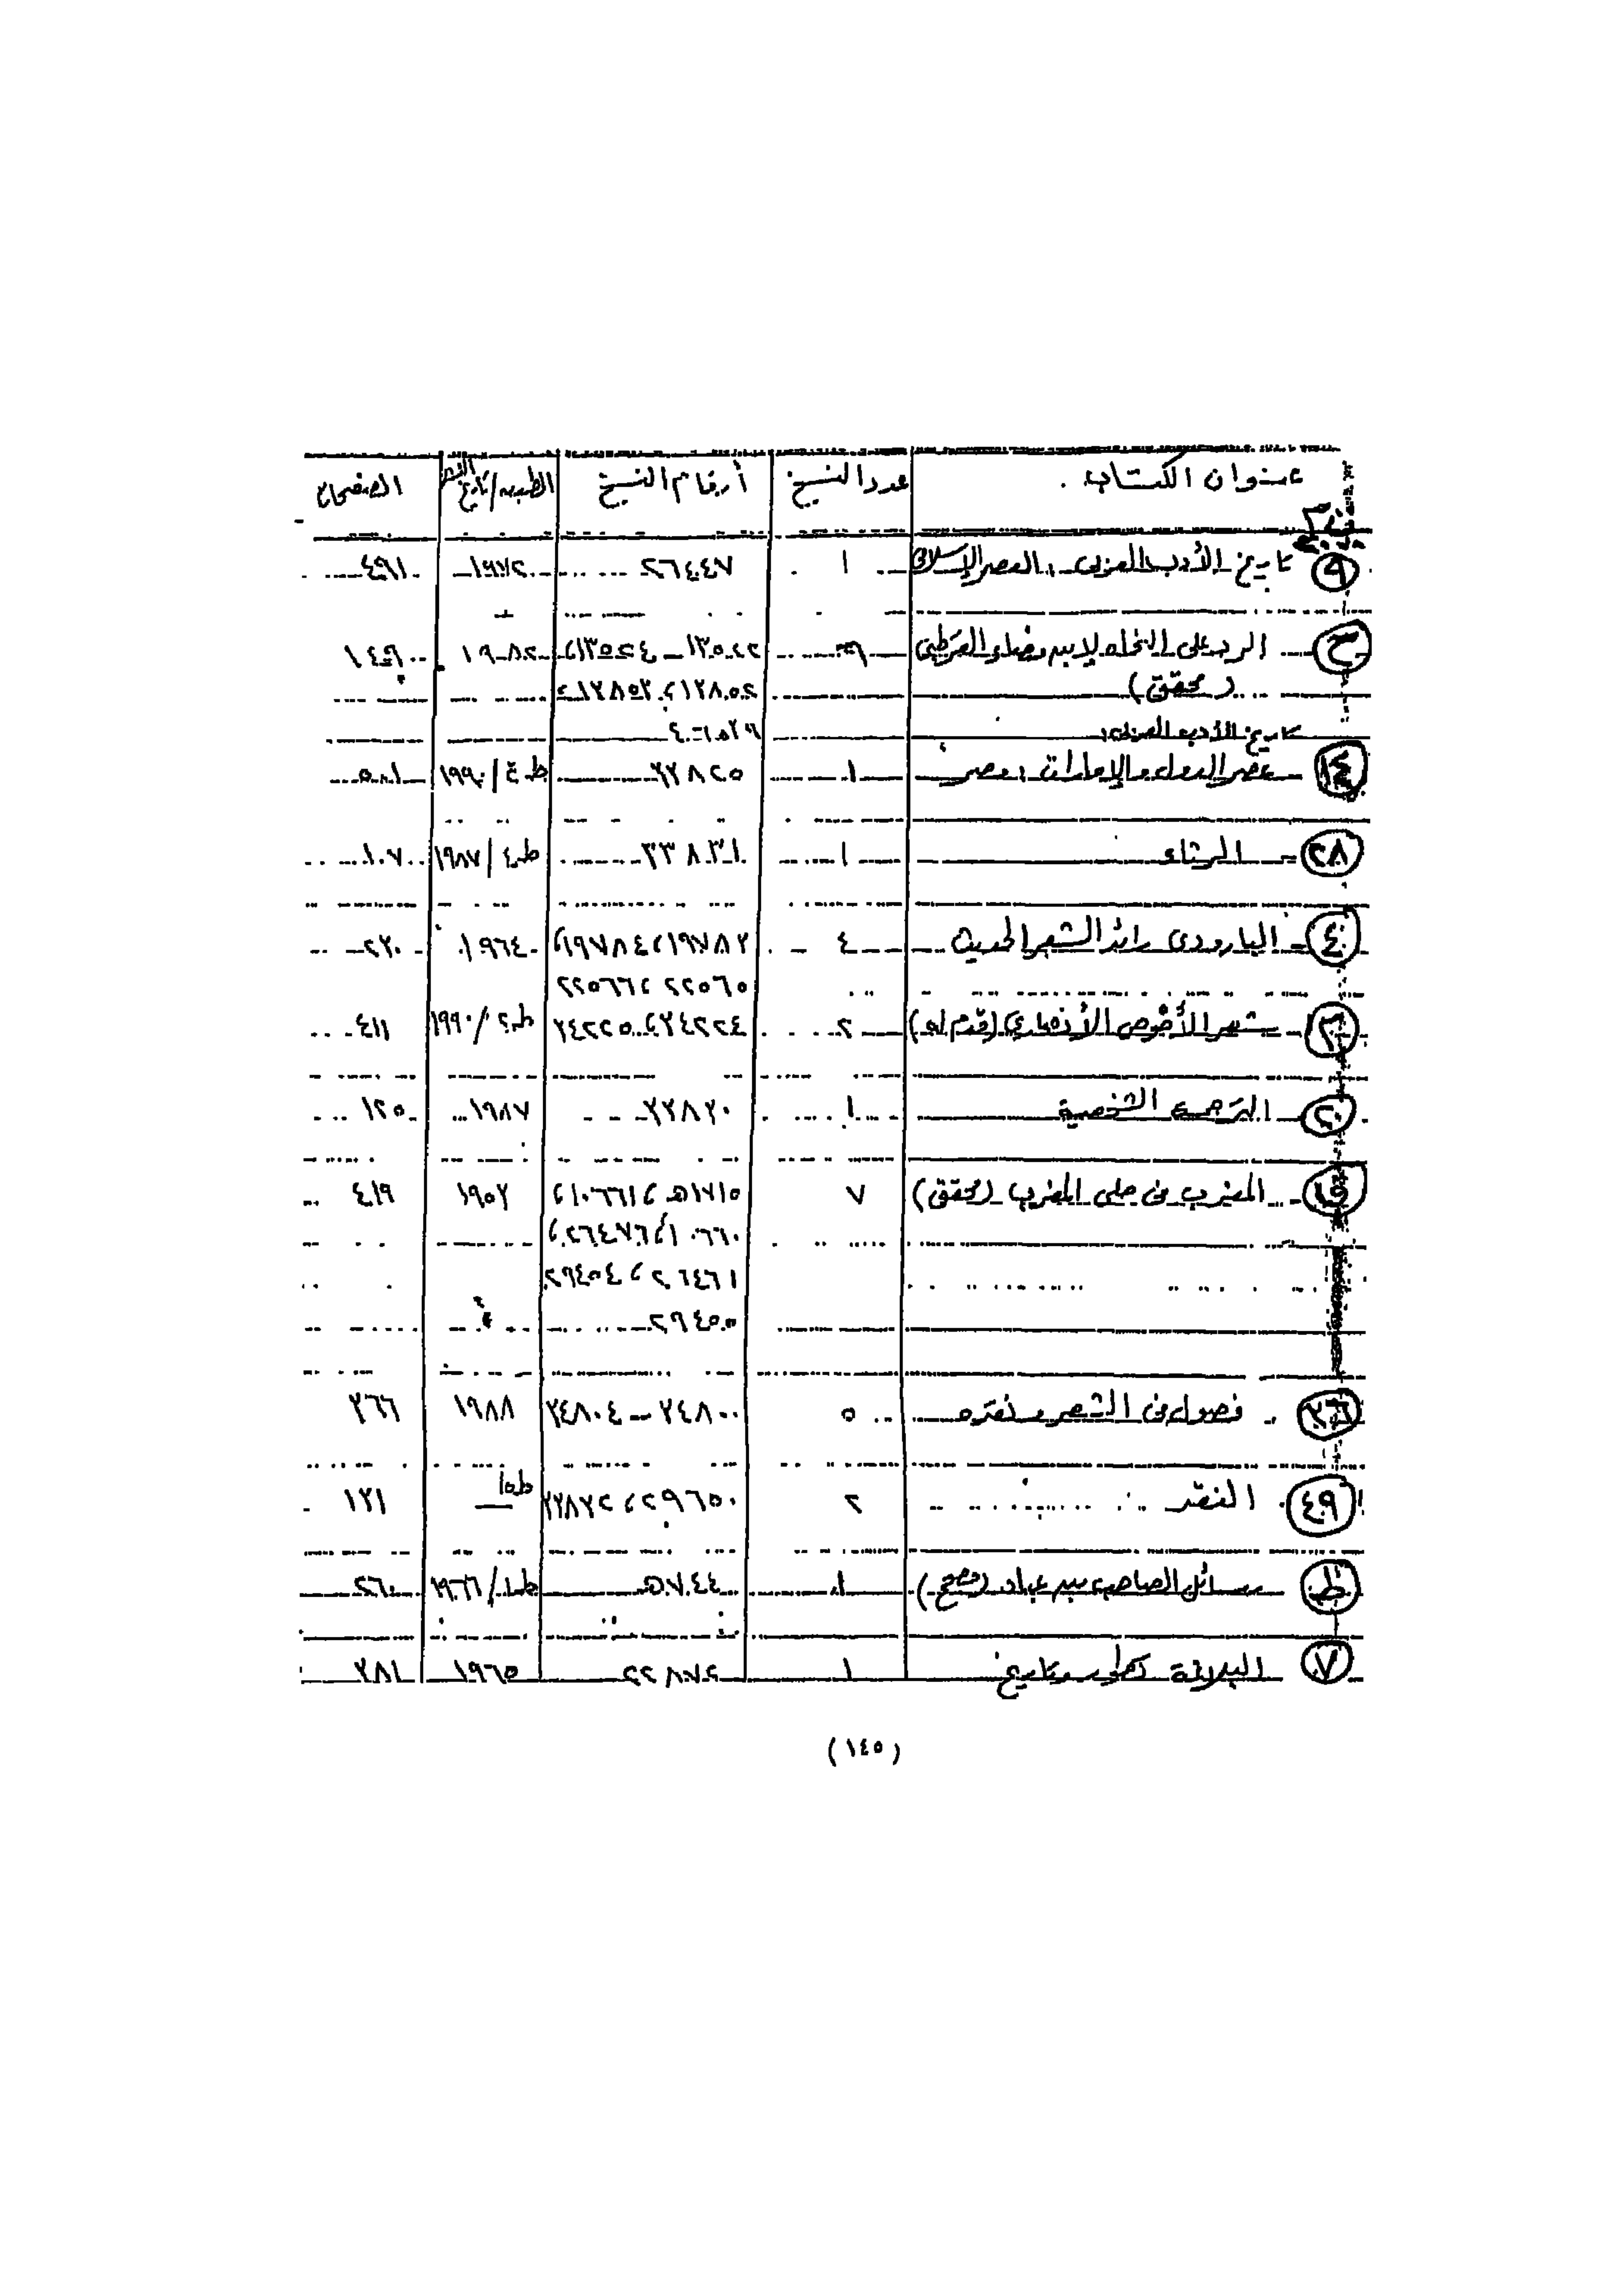 عنوان الكتاب . عدد النسخ أرقام النسخ الطبعه/تاريخ النشر الصفحات
٩ تاريخ الأدب العربى : العصر الإسلامى ١ ٢٦٤٤٧ ١٩٧٢ ٤٦١
ح الرد على النحاه لابن مضاء القرطبى ١٩٨٢
(محقق)
تاريخ الأدب العربى:
١٤ عصر الدول والإمارات : مصر ١ ٢٢٨٢٥ ط ٤/١٩٩٠ ٥٠١
٢٨ الرثاء ١ ٣٣٨٣١ ط ٤/١٩٨٧ ١٠٧
٤٠ البارودى رائد الشعر الحديث ٤ ١٩٧٨٢، ١٩٧٨٤، ١٩٦٤ ٢٢٠
٢٢٥٦٥، ٢٢٥٦٦
٣٠ شعر الأحوص الأنصارى (قدم له) ٢ ٢٤٢٢٤، ٢٤٢٢٥ ط ٢/١٩٩٠ ٤١١
٢٠ الترجمة الشخصية ١ ٢٢٨٢٠ ١٩٨٧ ١٢٥
ق المغرب فى حلى المغرب (محقق) ٧ ٥١٧١٥، ١٠٦٦١، ١٩٥٢ ٤١٩
٢٩٤٥٤
٢٩٤٥٥
٢٦ فصول فى الشعر ونقده ٥ ٢٤٨٠٠ – ٢٤٨٠٤ ١٩٨٨ ٢٦٦
٤٩ النقد ٢ ٢٩٦٥٠، ٢٢٨٧٢ ط ٥ ١٢١
ط رسائل الصاحب بن عباد (مصحح) ١ ٥٧٤٤ ط ١/١٩٦٦ ٢٦٠
٧ البلاغة تطور وتاريخ ١ ٢٢٨٧٢ ١٩٦٥ ٣٨١
(١٤٥)